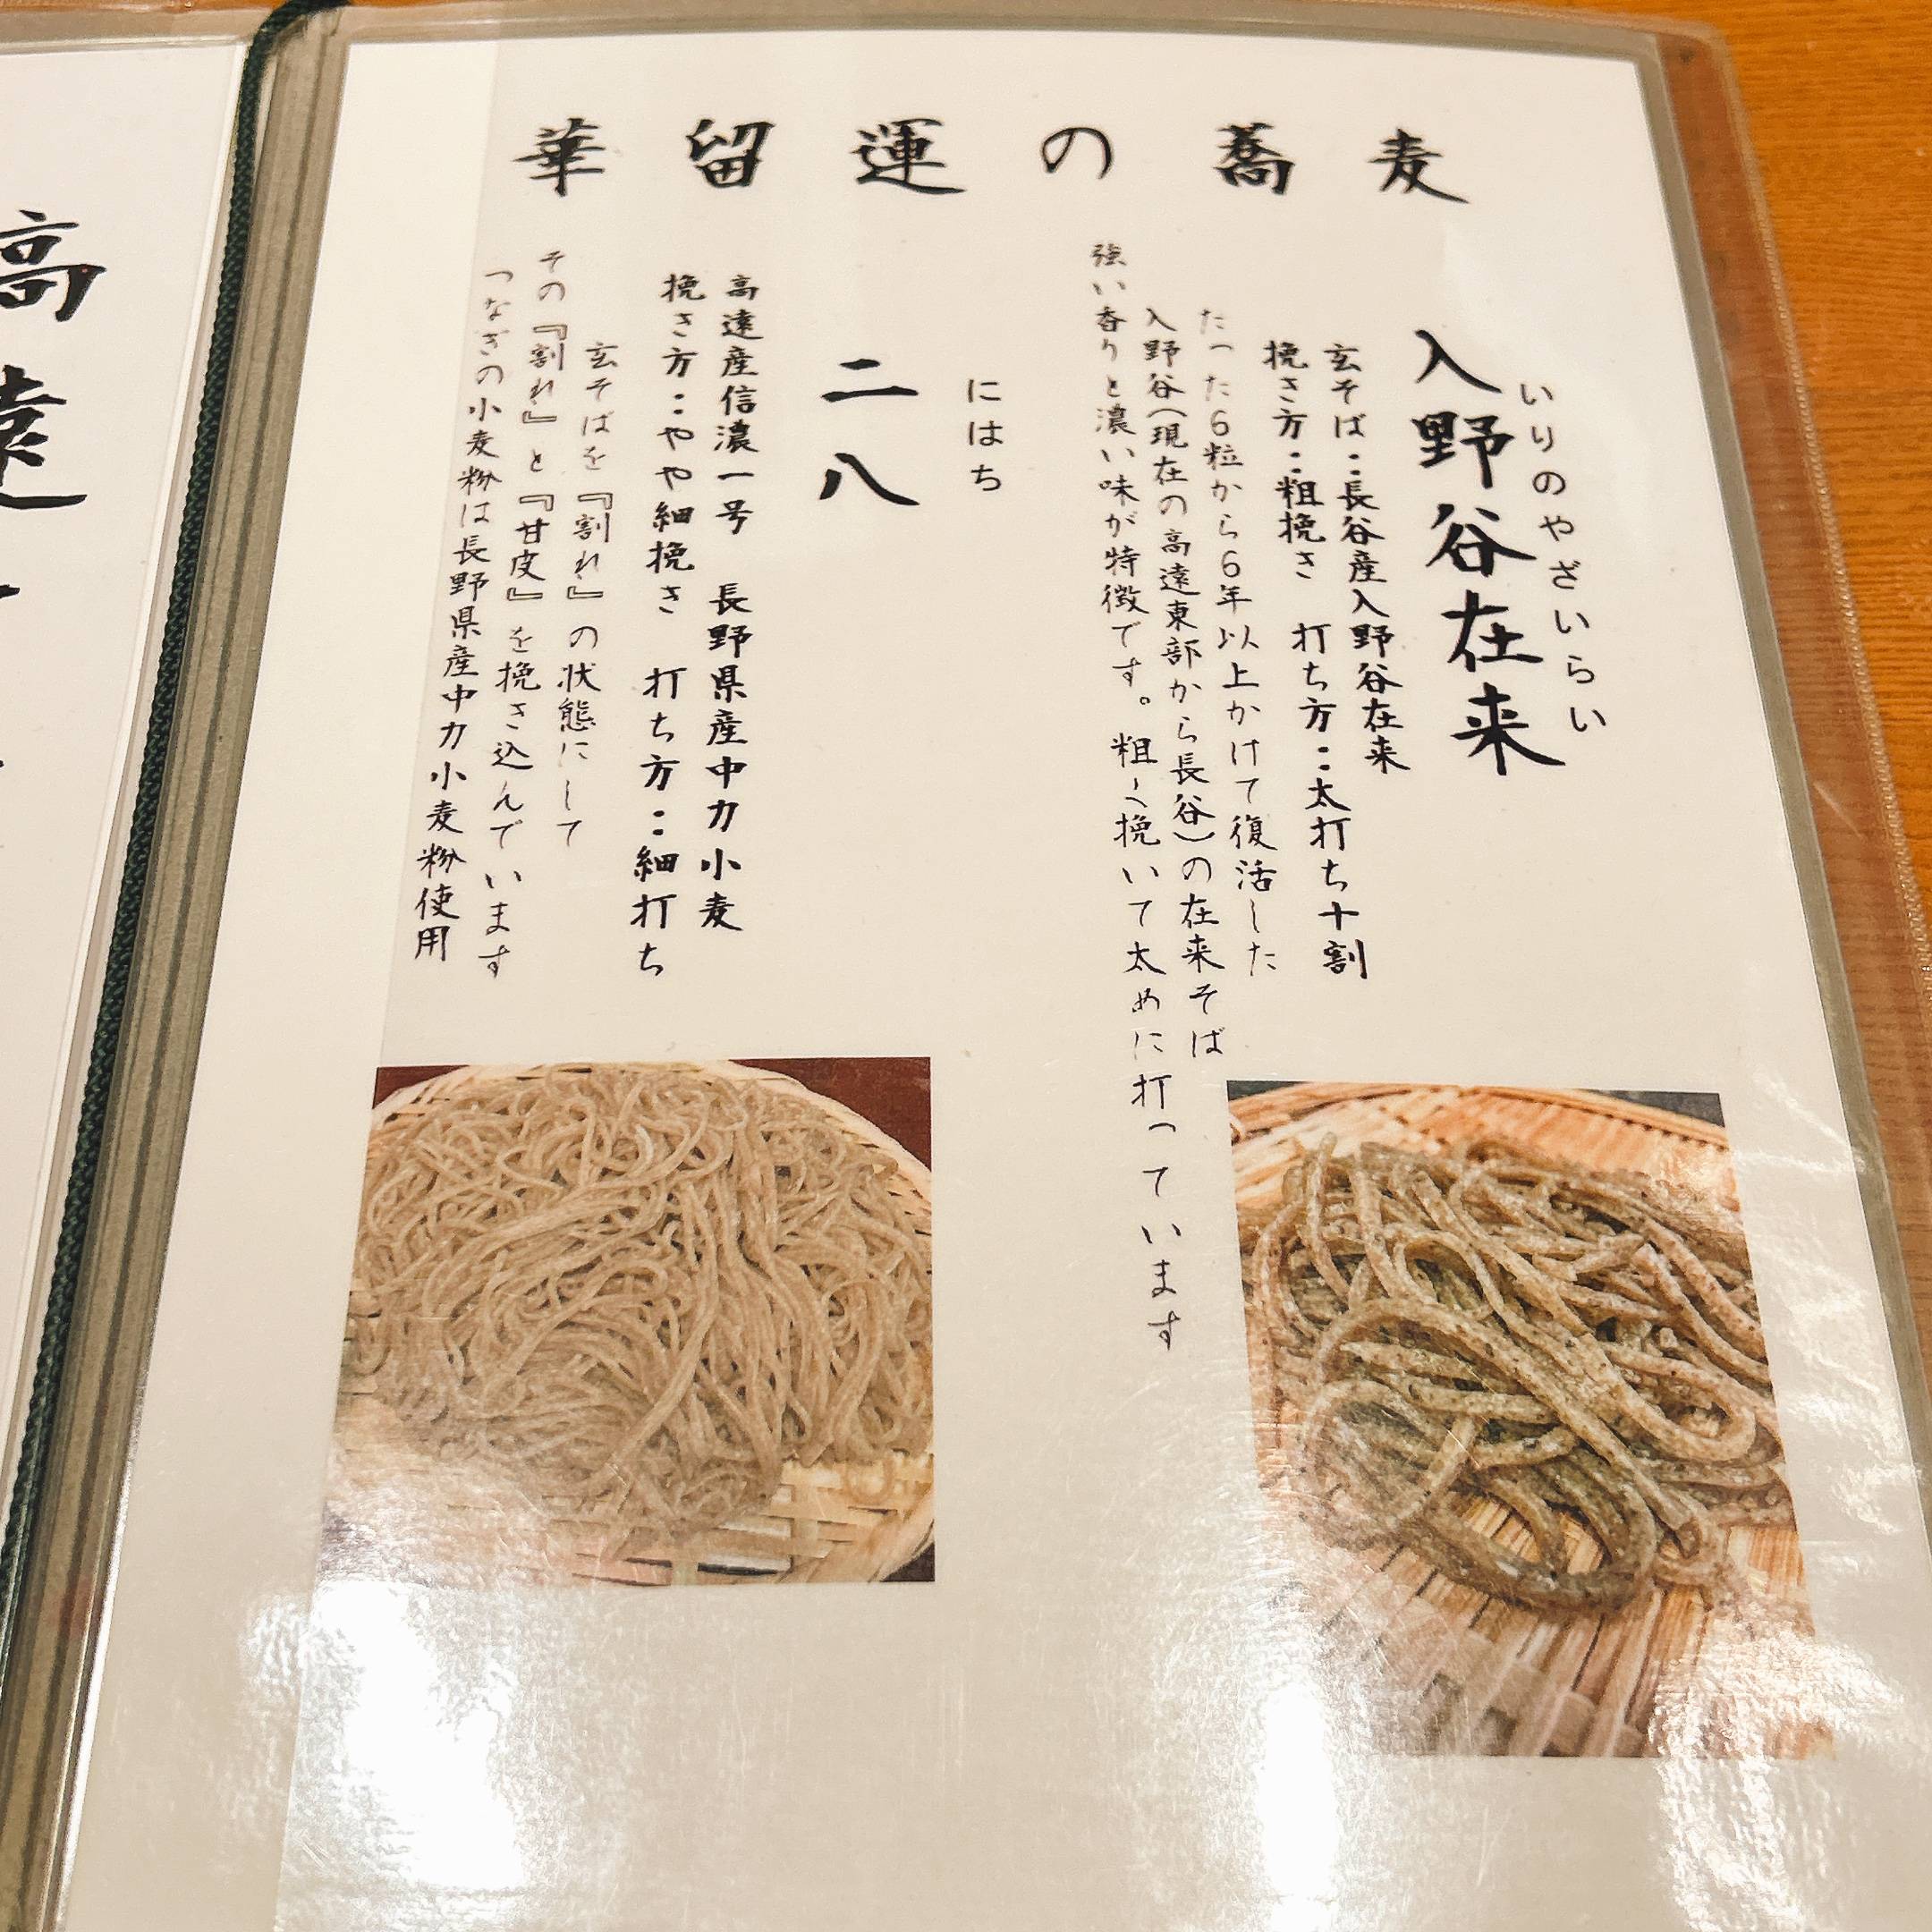 華留運の蕎麦
いりのやざいらい
入野谷在来
玄そば：長谷産入野谷在来
挽き方：粗挽き　打ち方：太打ち十割
たった6粒から6年以上かけて復活した
入野谷（現在の高遠東部から長谷）の在来そば
強い香りと濃い味が特徴です。粗く挽いて太めに打っています
にはち
二八
高遠産信濃一号　長野県産中力小麦
挽き方：やや細挽き　打ち方：細打ち
玄そばを『割れ』の状態にして
その『割れ』と『甘皮』を挽き込んでいます
つなぎの小麦粉は長野県産中力小麦粉使用
高遠